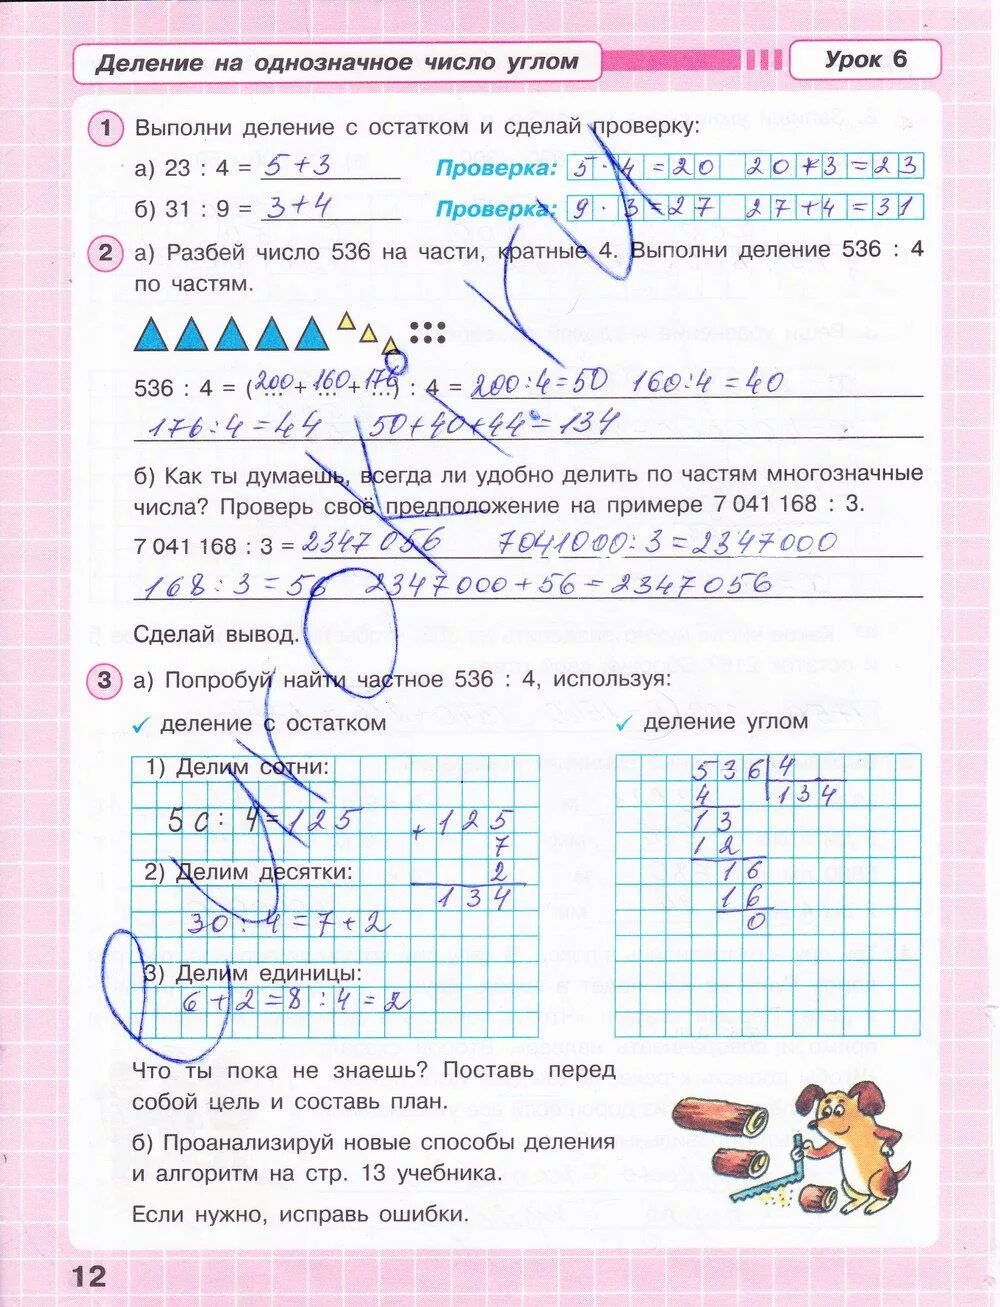 Деление на однозначное число углом
Урок 6
1 Выполни деление с остатком и сделай проверку:
а) 23 : 4 = 5+3 Проверка: 5 · 4 = 20 20+3=23
б) 31 : 9 = 3+4 Проверка: 9 · 3=27 27+4=31
2 а) Разбей число 536 на части, кратные 4. Выполни деление 536 : 4
по частям.
536 : 4 = (200 + 160 + 176) : 4 = 200:4=50 160:4=40
176:4=44 50+40+44=134
б) Как ты думаешь, всегда ли удобно делить по частям многозначные
числа? Проверь своё предположение на примере 7 041 168 : 3.
7 041 168 : 3 = 2347056 7041000:3=2347000
168:3=56 2347000+56=2347056
Сделай вывод.
3 а) Попробуй найти частное 536 : 4, используя:
✓ деление с остатком
✓ деление углом
1) Делим сотни:
50:4=125
+125
7
2
134
2) Делим десятки:
30:4=7+2
3) Делим единицы:
6+2=8:4=2
536 4
4 134
13
12
16
16
0
Что ты пока не знаешь? Поставь перед
собой цель и составь план.
б) Проанализируй новые способы деления
и алгоритм на стр. 13 учебника.
Если нужно, исправь ошибки.
12